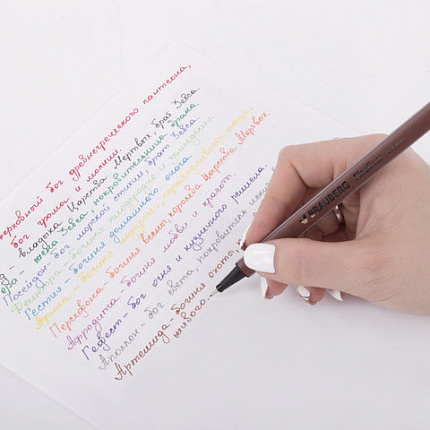 верховный бог древнегреческого пантеона,
бог грома и молнии.
владыка Царства Мертвых, брат Зевса.
жена Зевса, покровительница брака.
Посейдон - бог морской стихии, брат Зевса.
Деметра - богиня плодородия и земледелия.
Гестия - богиня домашнего очага.
Персефона - богиня весны, королева Царства Мертвых
Афродита - богиня любви и красоты.
Гефест - бог огня и кузнечного ремесла.
Аполлон - бог света, покровитель
Артемида - богиня охоты,
живого.
ERAUBERG